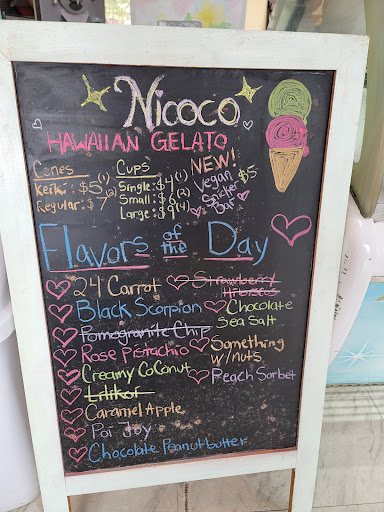 Nicoco
HAWAIIAN GELATO
Cones
Keiki: $5 (1)
Regular: $7 (2)
Cups
Single: $4 (1)
Small: $6 (2)
Large: $9 (4)
NEW!
Vegan $5
Snicker
Bar
Flavors of the Day
24 Carrot
Black Scorpion
Pomegranite Chip
Rose Pistachio
Creamy Coconut
Lilikoi
Caramel Apple
Poi Joy
Chocolate Peanutbutter
Strawberry
Hibiscus
Chocolate
Sea Salt
Something
w/nuts
Peach Sorbet